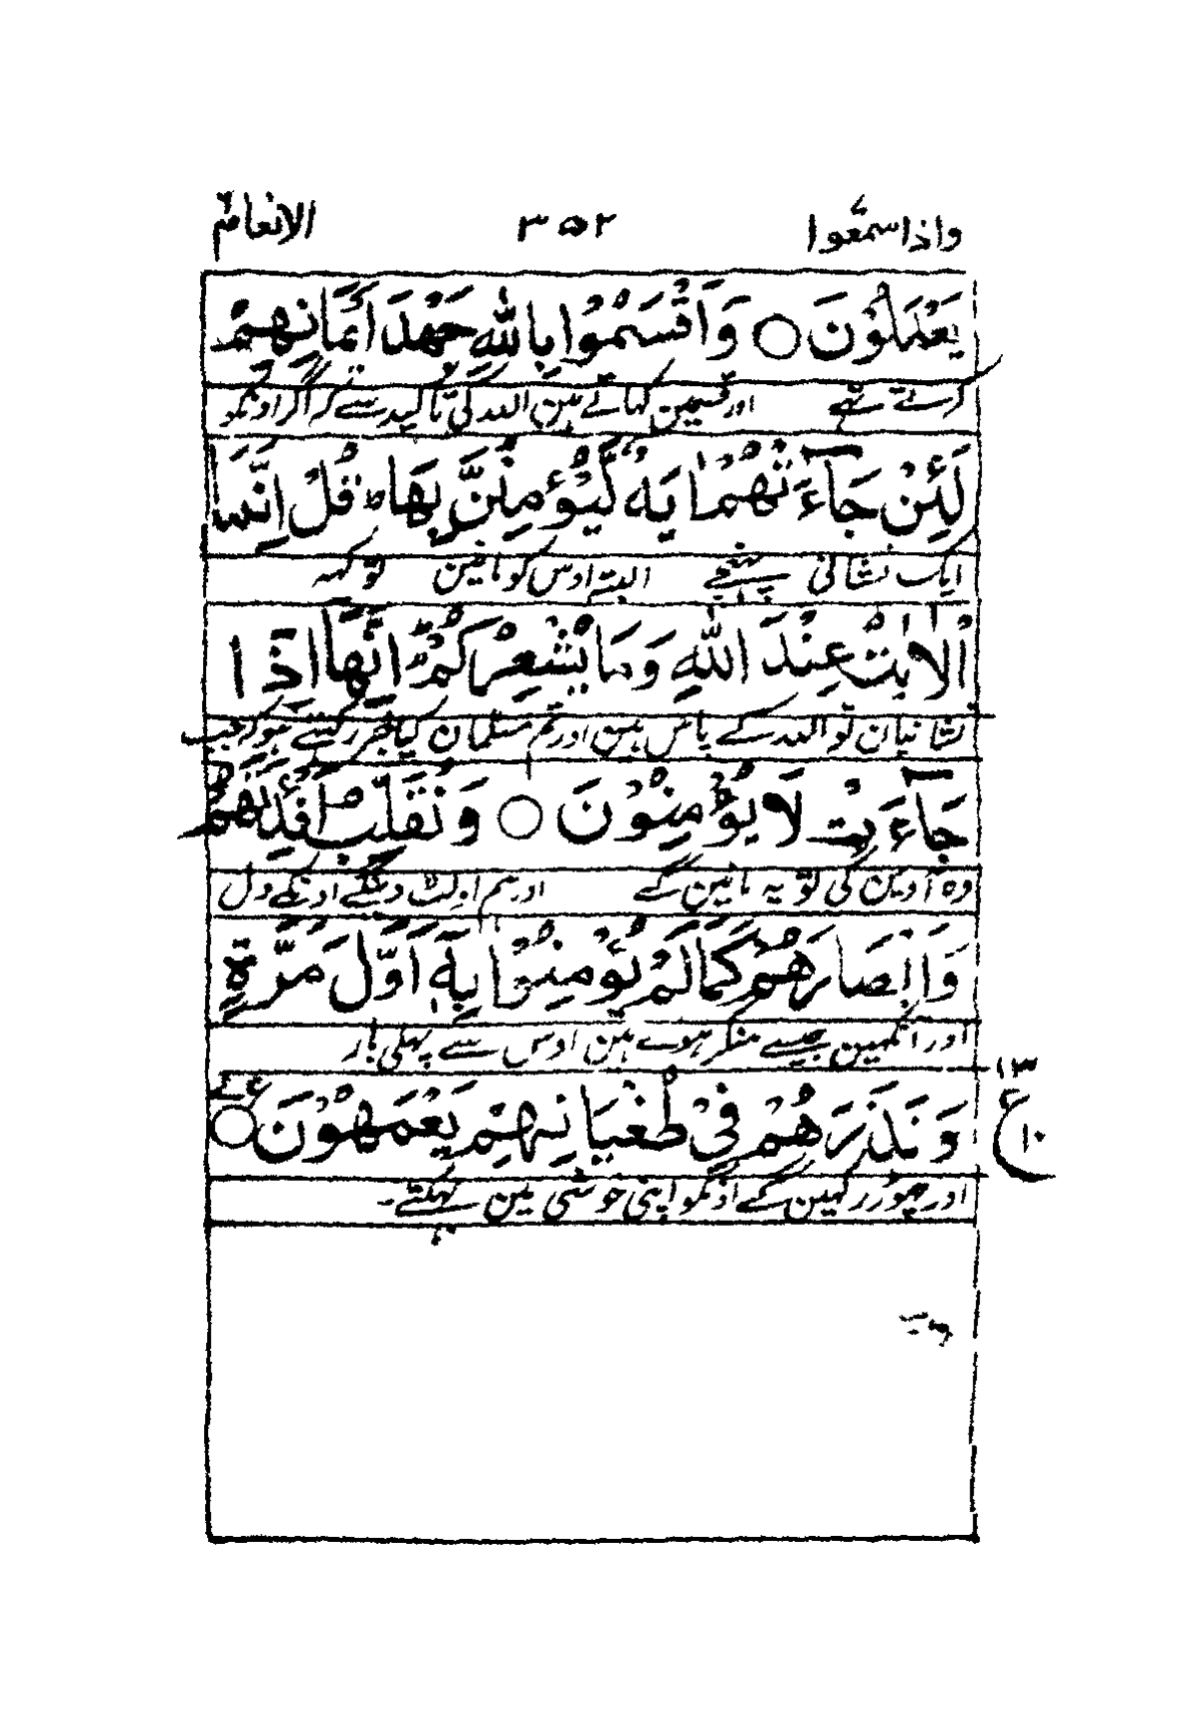 واذاسمعوا ٧ ٣٥٢ الانعام ٦
يَعْمَلُوْنَ ○ وَاَقْسَمُوْا بِاللّٰهِ جَهْدَ اَيْمَانِهِمْ
کرتے تھے اور قسمین کہاتے ہین اللہ کی تاکید سے کہ اگر اونکو
لَئِنْ جَآءَتْهُمْ اٰيَةٌ لَّيُؤْمِنُنَّ بِهَا ؕ قُلْ اِنَّمَا
ایک نشانی پہنچے البتہ اوس کو مانین تو کہہ
الْاٰيٰتُ عِنْدَ اللّٰهِ وَمَا يُشْعِرُكُمْ ؕ اَنَّهَا اِذَا
نشانیان تو اللہ کے پاس ہین اور تم مسلمان کیا خبر رکہتے ہو کہ جب
جَآءَتْ لَا يُؤْمِنُوْنَ ○ وَنُقَلِّبُ اَفْئِدَتَهُمْ
وہ آوین گی تو یہ مانین گے اور ہم اولٹ دینگے اونکے دل
وَاَبْصَارَهُمْ كَمَا لَمْ يُؤْمِنُوْا بِهٖٓ اَوَّلَ مَرَّةٍ
اور آنکہین جیسے منکر ہوے ہین اوس سے پہلی بار
وَّنَذَرُهُمْ فِيْ طُغْيَانِهِمْ يَعْمَهُوْنَ ○
١٣ ع ١٠
اور چہوڑ رکہین گے اونکو اپنی مین بہکتے۔